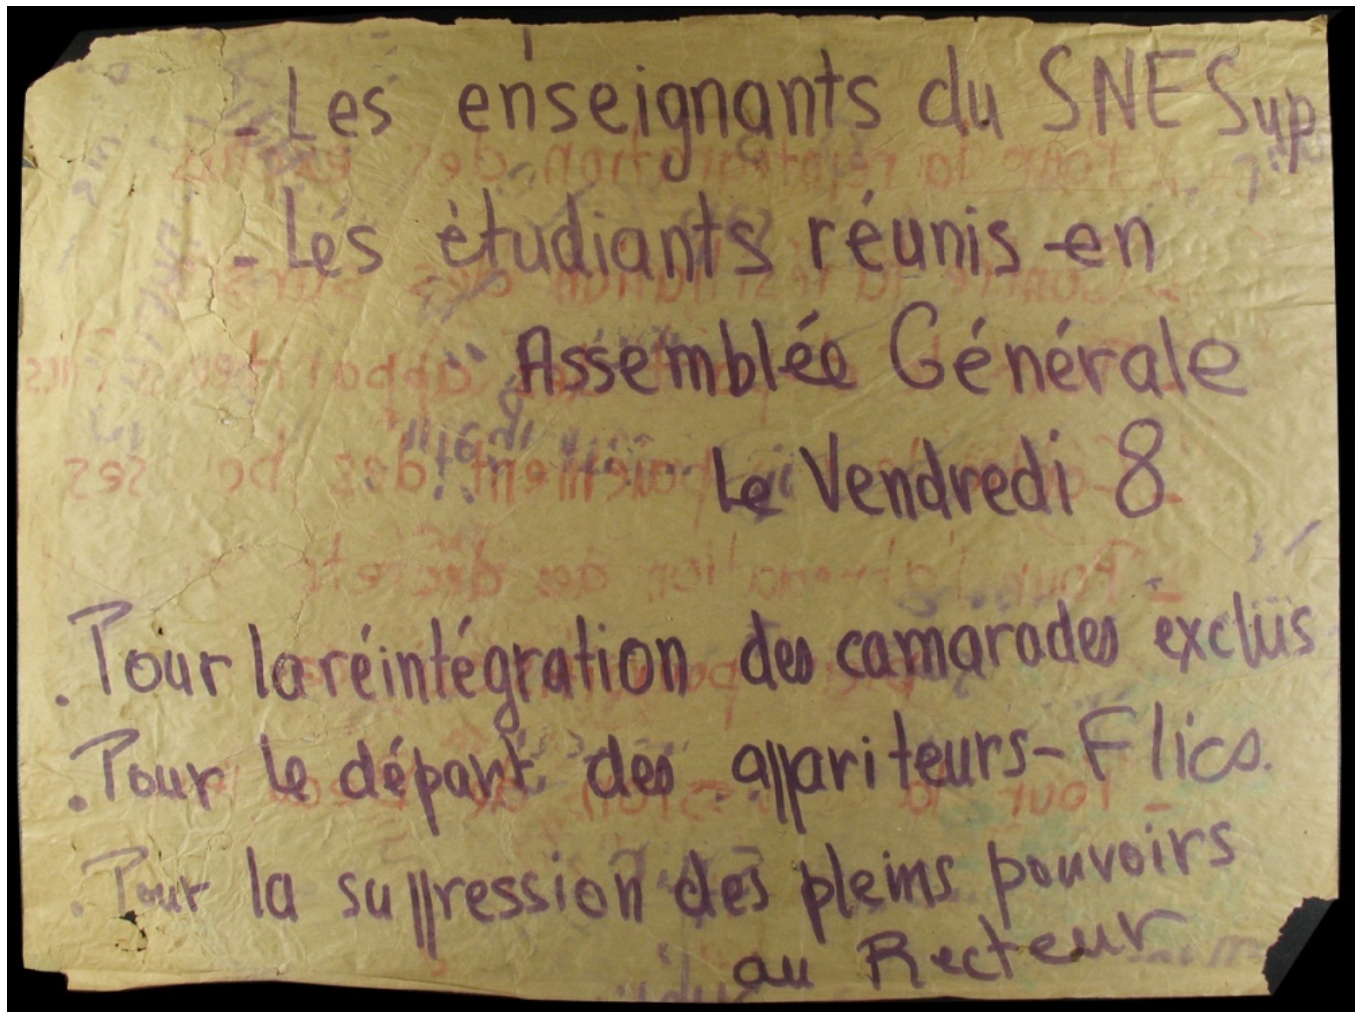 - Les enseignants du SNESup
- Les étudiants réunis en
Assemblée Générale
Le Vendredi 8
. Pour la réintégration des camarades exclus
. Pour le départ des appariteurs-Flics.
. Pour la suppression des pleins pouvoirs
au Recteur